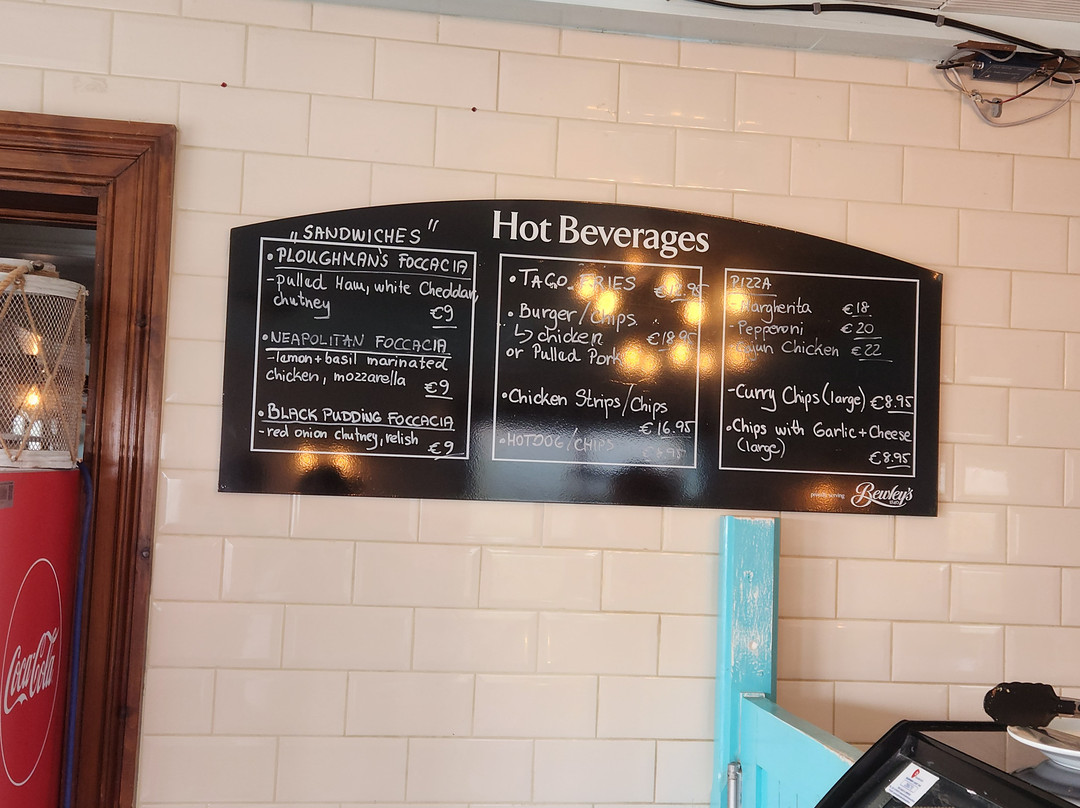 Hot Beverages
„SANDWICHES"
• PLOUGHMAN'S FOCCACIA
- pulled Ham, white Cheddar,
chutney
€9
• NEAPOLITAN FOCCACIA
- lemon + basil marinated
chicken, mozzarella
€9
• BLACK PUDDING FOCCACIA
- red onion chutney, relish
€9
• TACO FRIES
• Burger/Chips
↳ chicken €18.95
or Pulled Pork
• Chicken Strips/Chips
€16.95
• HOTDOG/CHIPS
PIZZA
- Margherita €18
- Pepperoni €20
- Cajun Chicken €22
- Curry Chips (large) €8.95
• Chips with Garlic + Cheese
(large)
€8.95
proudly serving
Bewley's
Coca-Cola